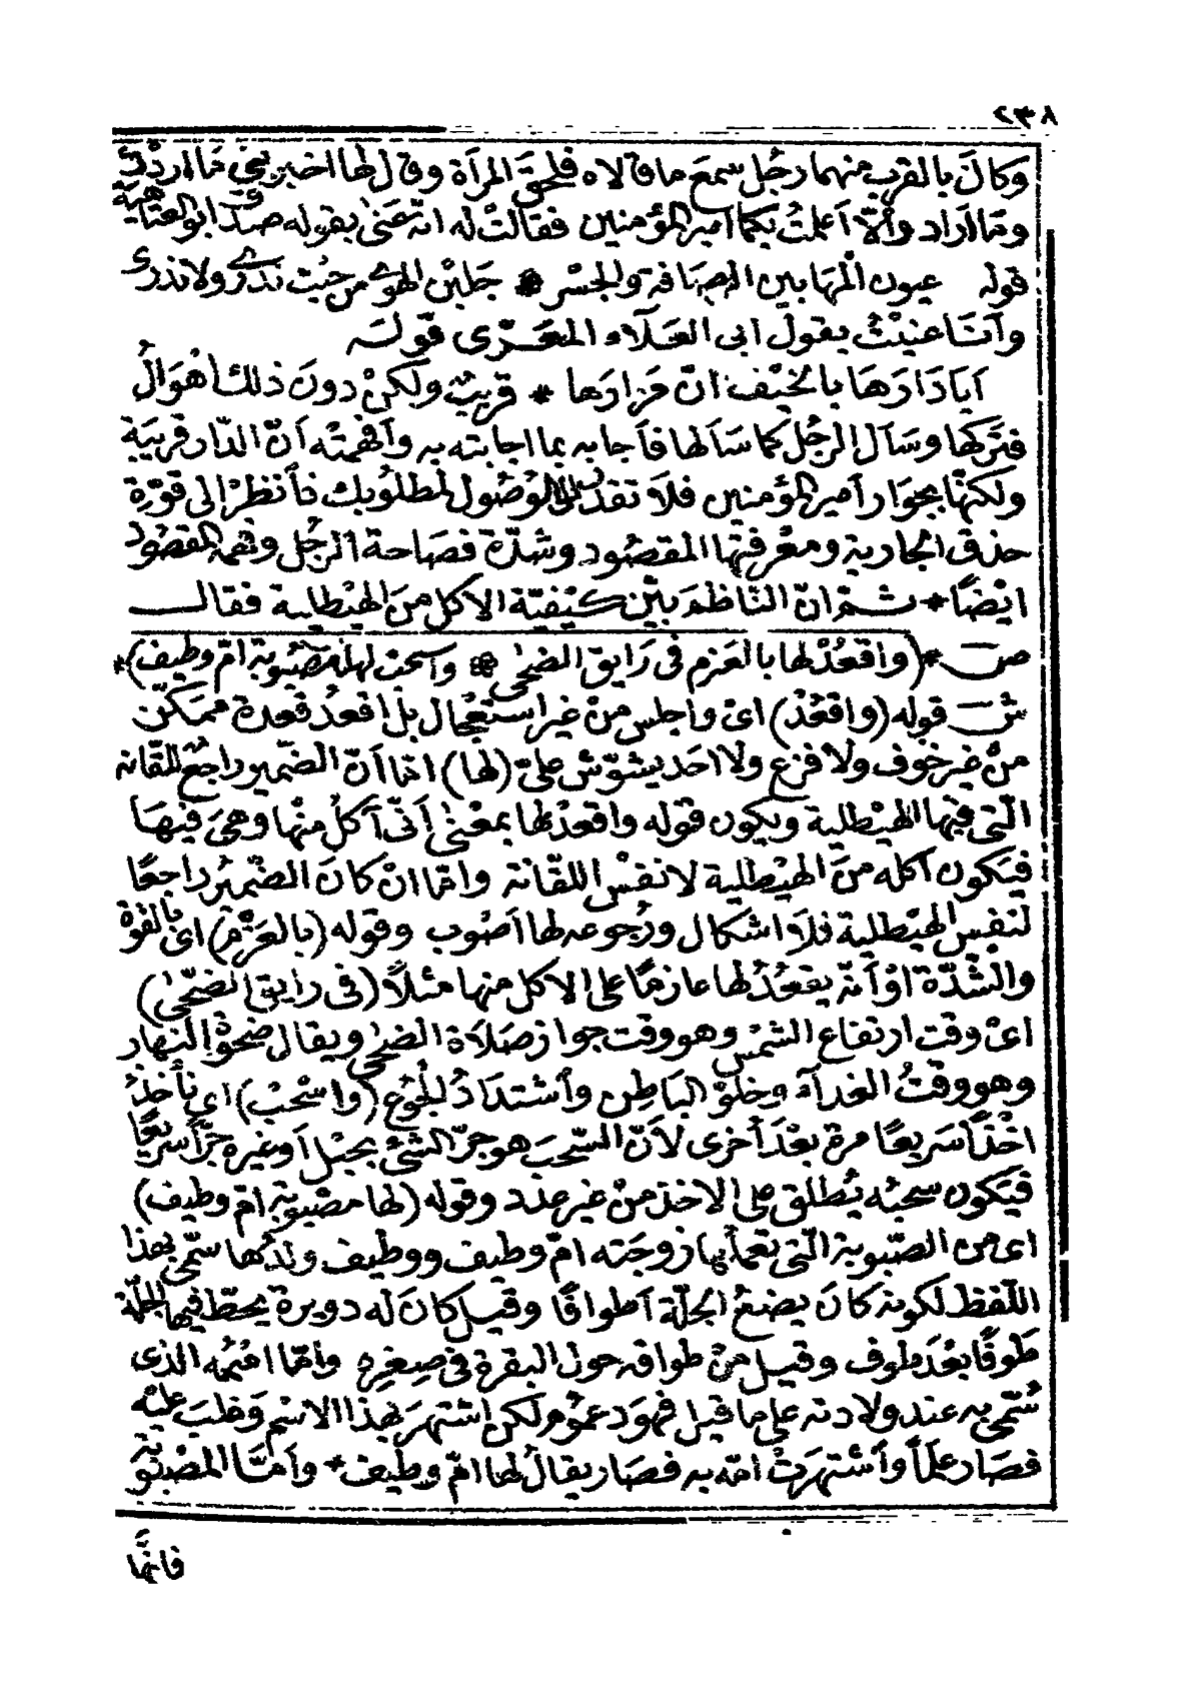 ٢٣٨
وكَانَ بالقرب منهما رجُل سمعَ ما قالاه فلحقَ المرأة وقال لها اخبريني ما اردْتى
وما اراد والّا أعلمتُ بكما امير المؤمنين فقالتْ له انّه عَنىٰ بقوله صدق ابو العتاهية
قوله عيون المَهَا بين الرصَافة والجسْر * جَلبْن الهوىٰ من حيْث ندْرى ولا ندرى
وأنا عنيْتُ بقول ابى العَلآء المعَرّى قولَه
أيَا دَارَهَا بالخيْف انّ مَزارَها * قريبٌ ولكنْ دونَ ذلك أهْوَالُ
فتركها وسَأل الرجُل كما سَألها فأجابه بما اجابته به وأفهمتْه أنّ الدّار قريبَة
ولكنّها بجوَار أمير المؤمنين فلَا تقدر على الوُصُول لمطلُوبك فأنظرْ الى قوّة
حذق الجارية ومعْرفتها المقصُود وشدّة فصَاحة الرجُل وفهمه المقصُود
ايْضًا * ثمّ انّ النّاظمَ بيّن كيْفيّة الاكل منَ الهيْطلية فقال
ص * (واقعُدْ لها بالعَزم فى رَايق الضحٰى * واسحَبْ لها مصْبُوبة امّ وطيف) *
ش قوله (واقعُدْ) اىْ واجلس منْ غير استعْجال بلْ اقعدْ قعدة ممَكّن
منْ غير خوف ولا فزع ولا احَد يشوّش علىّ (لها) امّا أنّ الضّمير راجعٌ للقّانه
الّتى فيْها الهيْطلية ويكون قوله واقعدْ لها بمعْنىٰ أنّى آكلُ منْها وهىَ فيْهَا
فيَكون أكله منَ الهيْطلية لا نفْس اللقّانة وامّا انْ كانَ الضّميرُ راجعًا
لنفس الهيْطلية فلَا اشكال ورُجوعه لها أصْوب وقوله (بالعَزْم) اىْ بالقوّة
والشّدّة اوْ أنّه يقعُدُ لها عازمًا على الاكل منها مثلًا (فى رايق الضّحٰى)
اىْ وقت ارتفاع الشمْس وهو وقت جواز صَلَاة الضحٰى ويقال ضحْوة النّهار
وهو وقتُ الغدآء وخلوّ البَاطِن وأشتدَادُ الجُوْع (واسْحَبْ) اى نأخذُ
اخْذًا سَريعًا مرةً بعْدَ أخرى لأنّ السّحبَ هو جرّ الشئ بحبْل أو غيره جرًّا سَريعًا
فيَكون سحبُه يُطلق على الاخذ منْ غير عدد وقوله (لها مصْبُوبة امّ وطيف)
اى من الصّبّوبة الّتى تعْملها زوجَته امّ وطيف ووطيف ولدُها سمّى بهذا
اللّفظ لكونه كانَ يضعُ الجلّة أطواقًا وقيل كانَ له دويرة يحطّ فيها الجلّة
طَوفًا بعْدَ طوف وقيل منْ طوافه حول البقرة فى صِغرِه وامّا اسْمه الذى
سُمّى به عند ولادته على ما قيل فهوَ دعمُوم ولكن اشتهرَ بهذا الاسم وَغلبَ عليْه
فصَار علمًا وأشتهرَتْ امّه به فصَار يقالُ لها امّ وطيف * وأمّا المصْبُوبة
فانّها